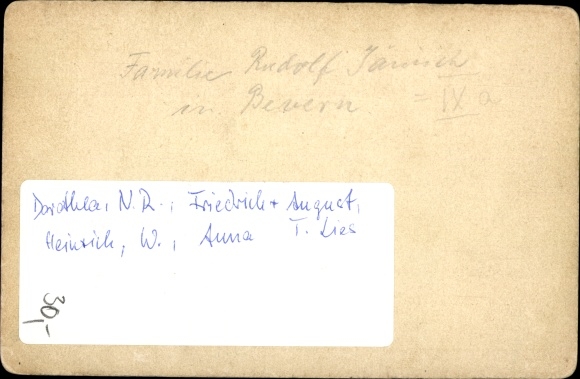 Familie Rudolf Jänisch
in Bevern = IX a
Dorothea, N. R., Friedrich + August,
Heinrich, W., Anna T. Lies
30,-